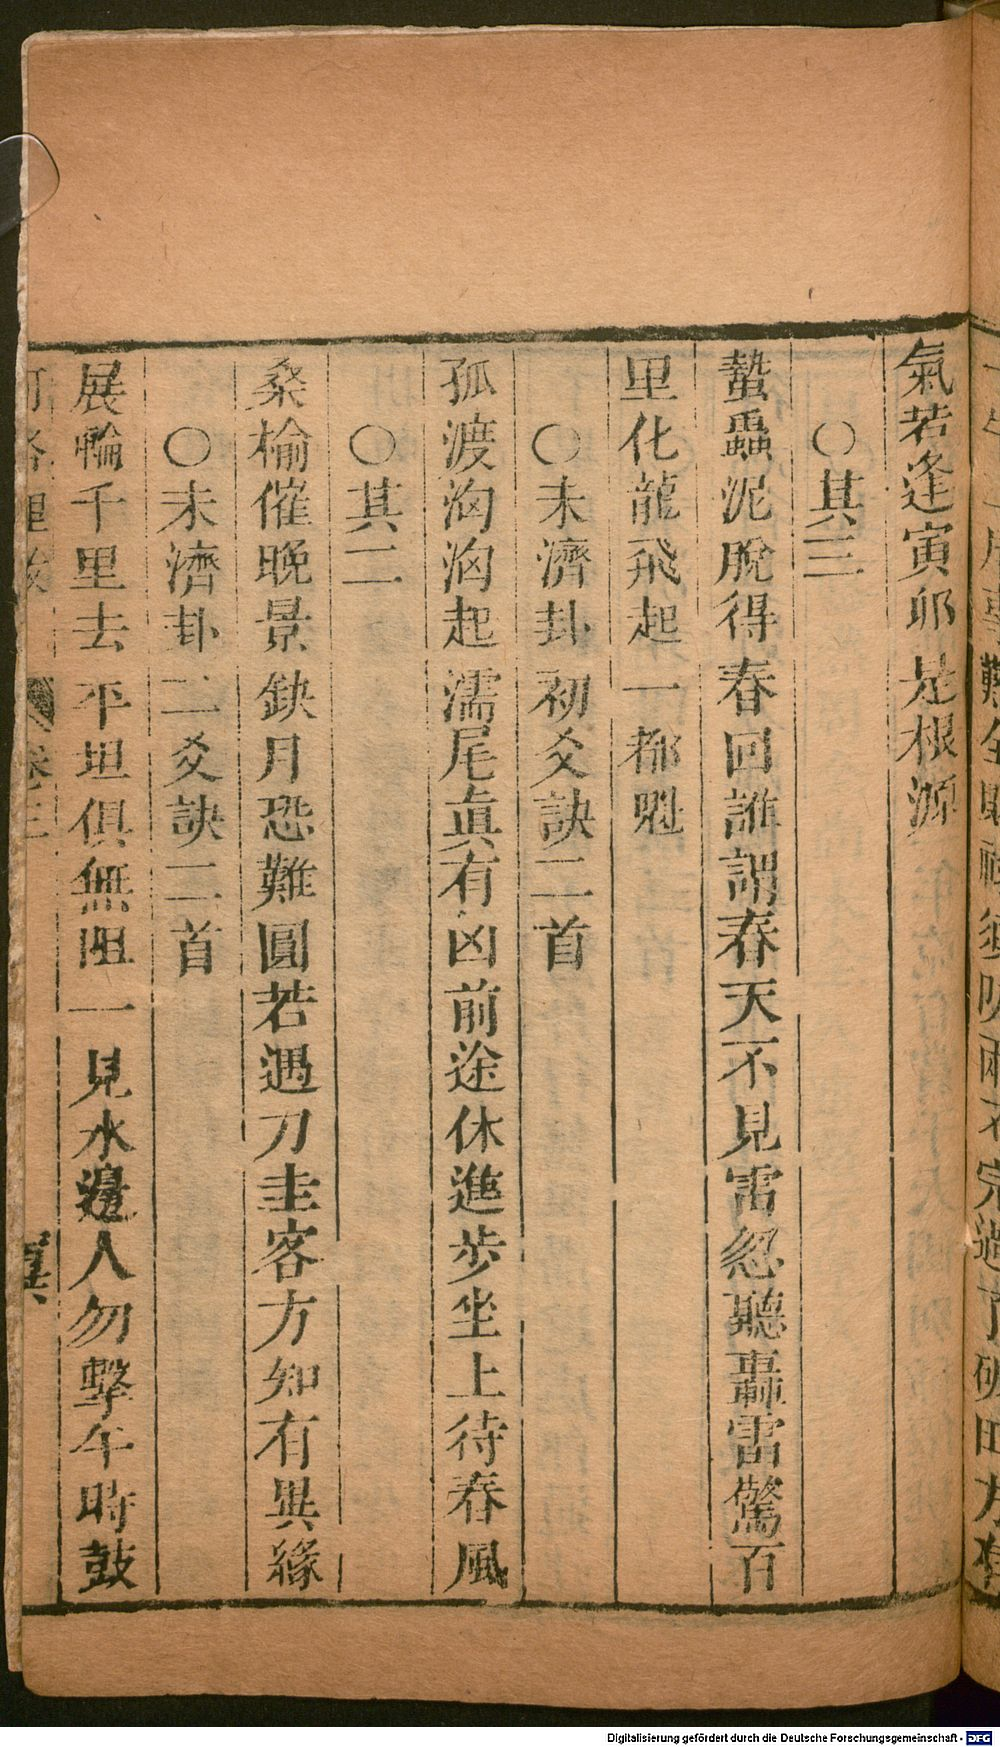 氣若逢寅卯是根源
○其三
蟄蟲泥脫得春回誰謂春天不見雷忽聽轟雷驚百
里化龍飛起一都魁
○未濟卦初爻訣二首
孤渡洶洶起濡尾眞有凶前途休進步坐上待春風
○其二
桑榆催晚景缺月恐難圓若遇刀圭客方知有異緣
○未濟卦二爻訣二首
展輪千里去平坦俱無阻一見水邊人勿擊午時鼓
卷三
Digitalisierung gefördert durch die Deutsche Forschungsgemeinschaft - DFG